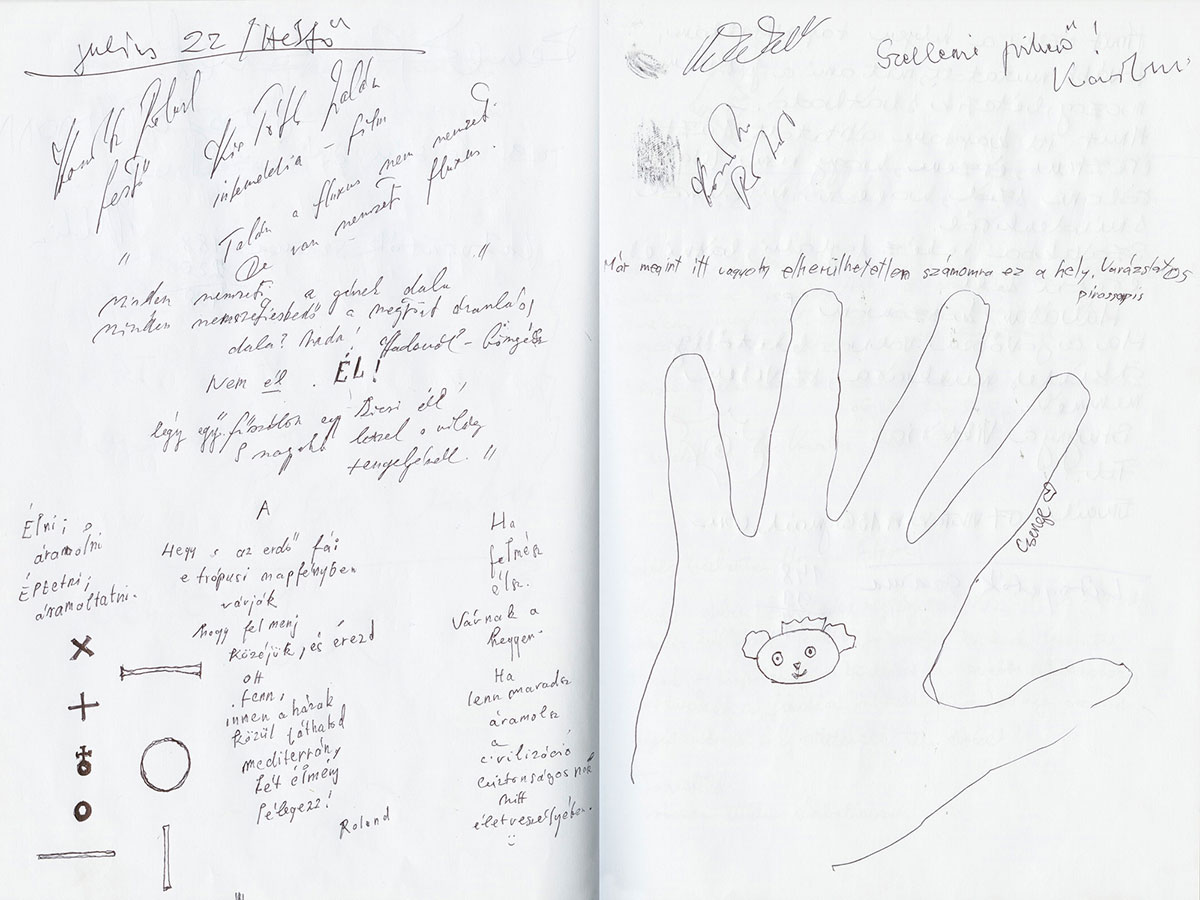 július 22 / Hétfő
festő
Kis Tóth Zalán
intermédia - film
Talán a fluxus nem nemzet
de van nemzeti fluxus.
minden nemzeti, a gének dala
minden a megtört áramlás
dala? Nada!
Nem él. ÉL!
légy egy fűszálon a pici él
S nagyobb leszel a világ
tengelyénél."
Élni;
áramolni
Éltetni;
áramoltatni.
A
Hegy s az erdő fái
e trópusi napfényben
várják
hogy felmenj
közéjük, és érezd
ott
fenn,
innen a házak
közül láthatod
mediterrán,
Lét élmény
Lélegezz!
Roland
Ha
felmész
élsz.
Várnak a
hegyen.
Ha
lenn maradsz
áramolsz
a
civilizáció
biztonságosnak
hitt
életveszélyében.
Szellemi pihenő!
Már megint itt vagyok, elkerülhetetlen számomra ez a hely. Varázslatos
pirospipis
Csenge